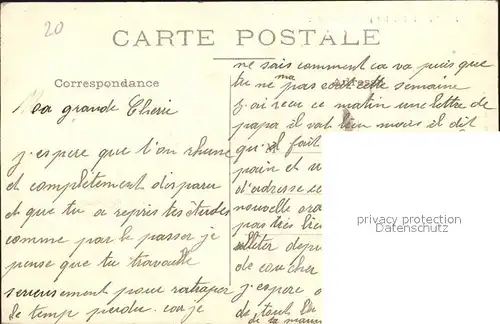 20
CARTE POSTALE
Correspondance
Ma grande Cherie
j'espere que ton rhume
et completement disparu
et que tu a repris tes études
comme par le passer je
pense que tu travaille
serieusement pour ratraper
le temps perdu car je
ne sais comment ca va puis que
Adresse
tu ne ma pas ecrit cette semaine
j'ai recu ce matin une lettre de
papa il va bien mais il dit
qu'il fait
pain et
d'adresse
nouvelle
pas très
de ton cher
j'espere
de tout
de ta maman
privacy protection
Datenschutz